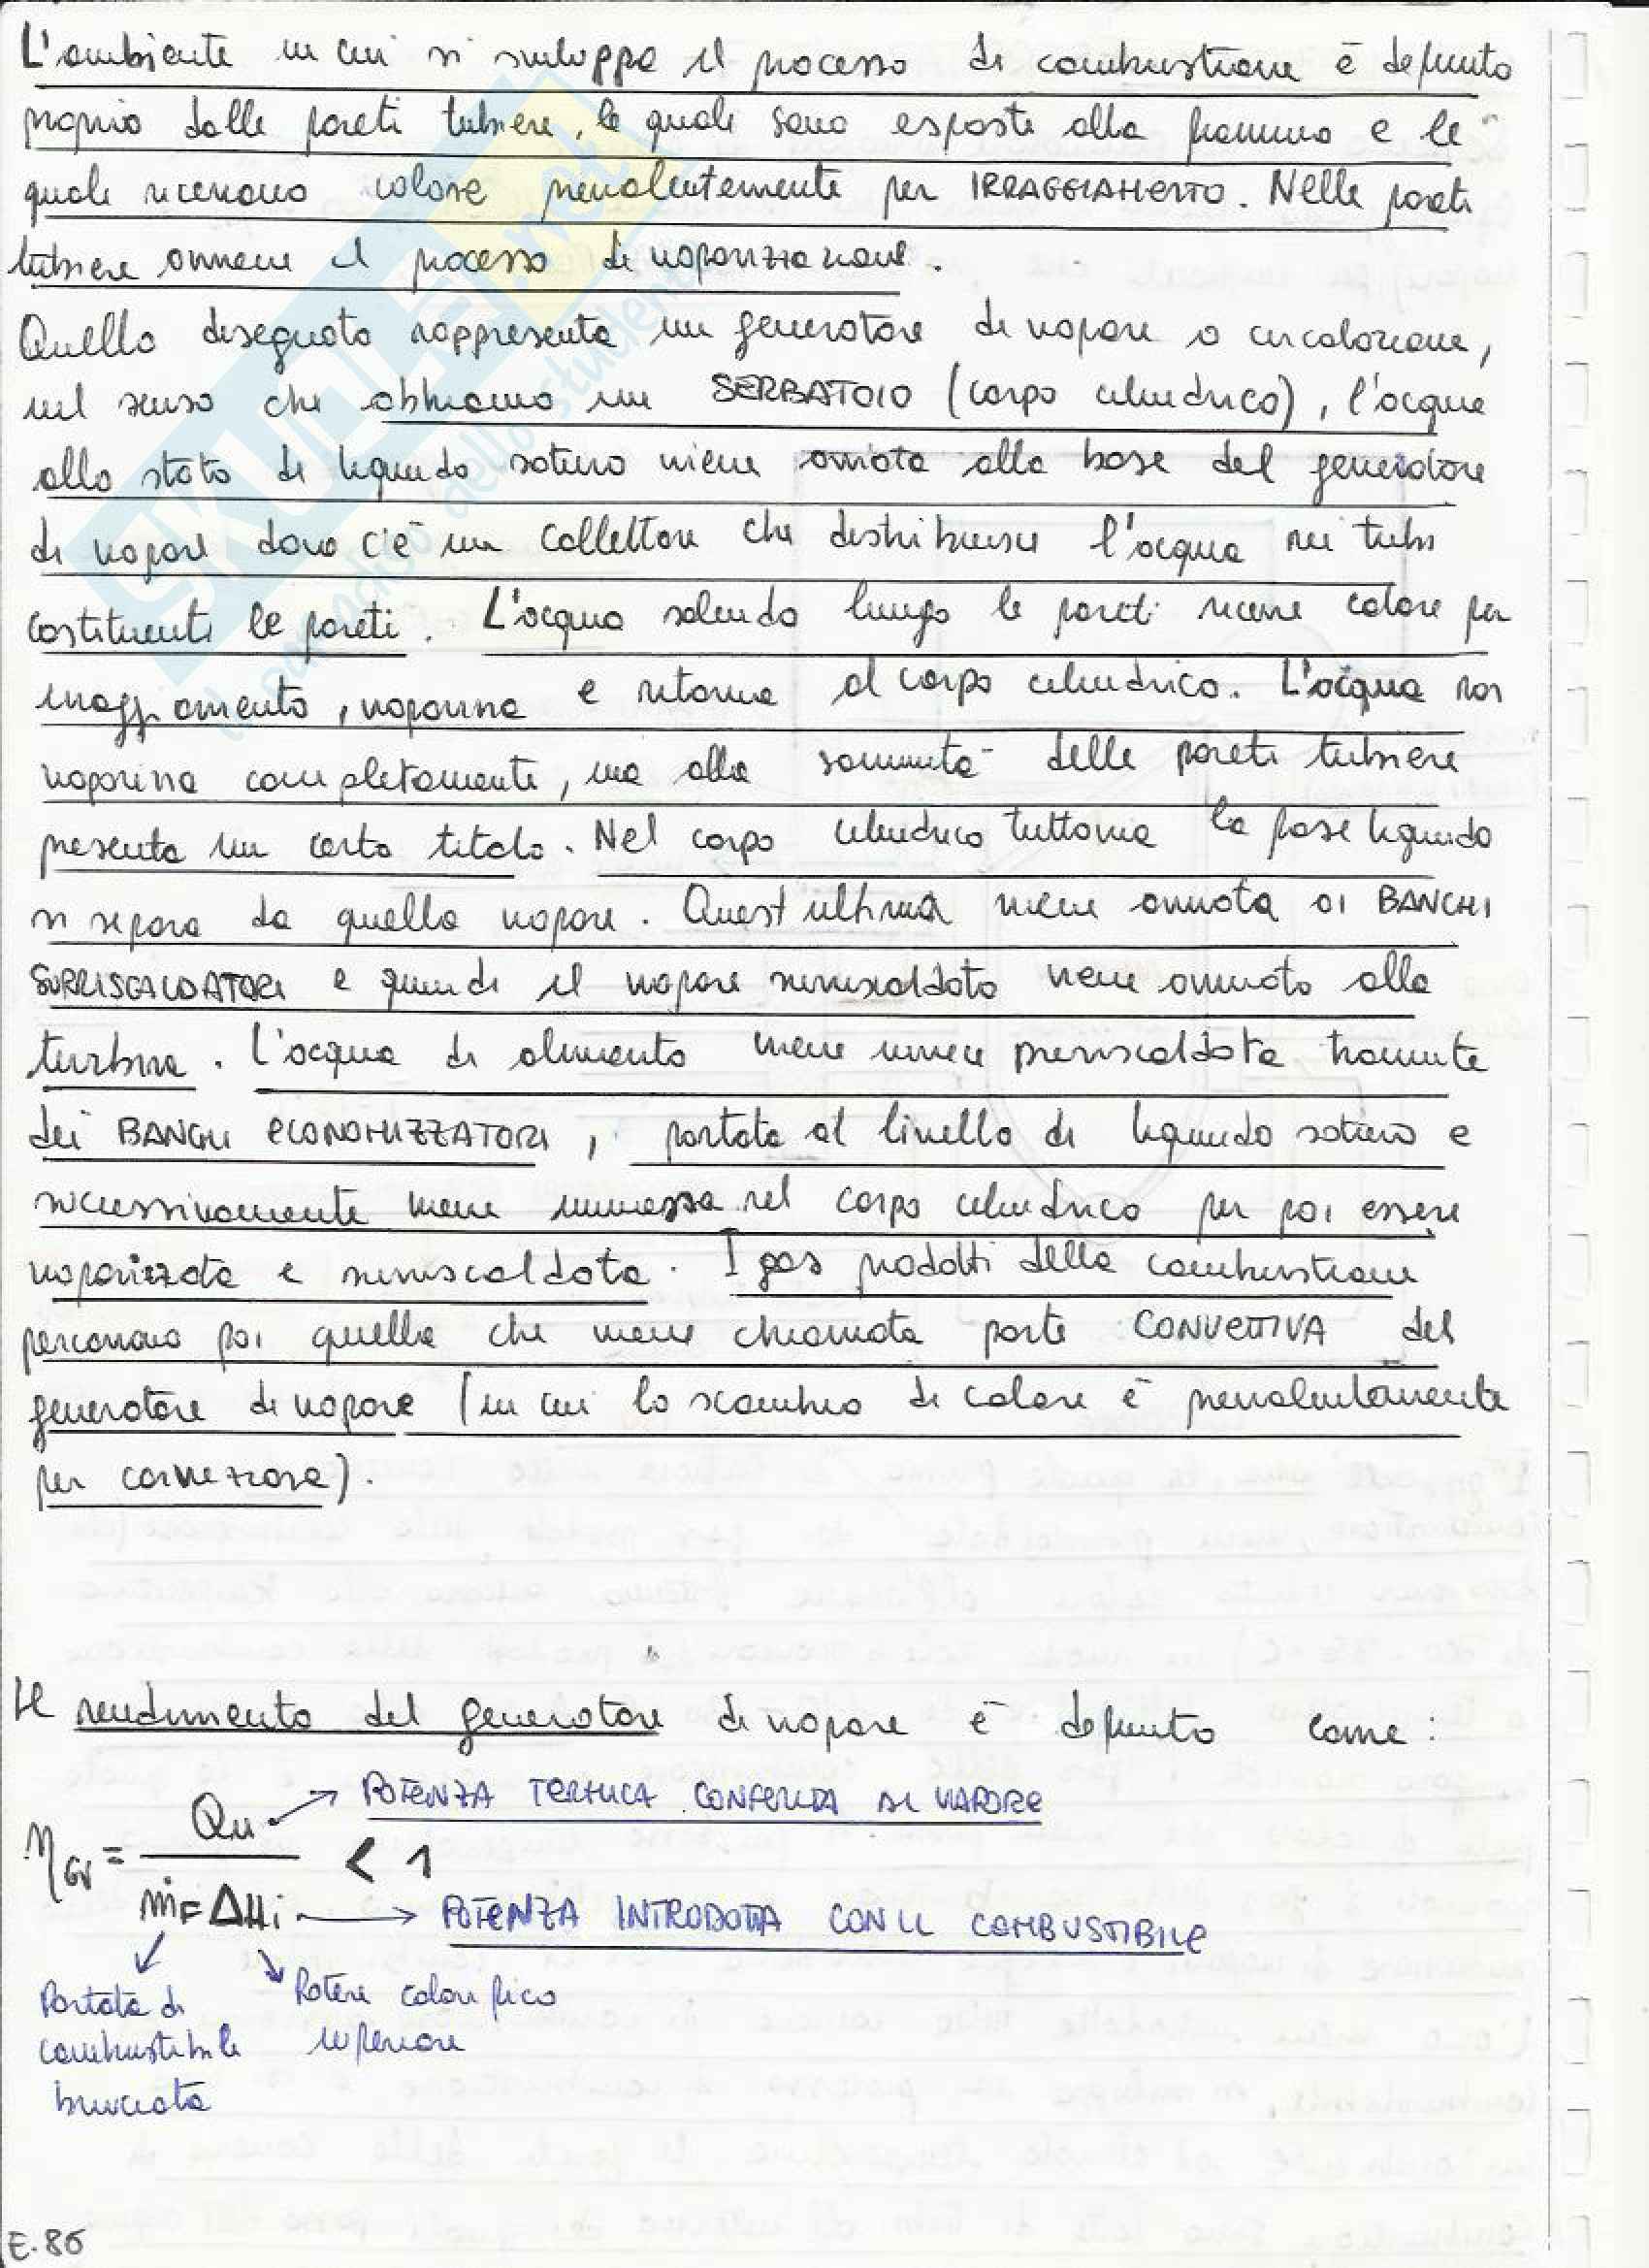 L'ambiente in cui si sviluppa il processo di combustione è definito
proprio dalle pareti tubiere, le quali sono esposte alla fiamma e le
quali ricevono calore prevalentemente per IRRAGGIAMENTO. Nelle pareti
tubiere avviene il processo di vaporizzazione.
Quello disegnato rappresenta un generatore di vapore a circolazione,
nel senso che abbiamo un SERBATOIO (corpo cilindrico), l'acqua
allo stato di liquido saturo viene avviata alla base del generatore
di vapore dove c'è un collettore che distribuisce l'acqua nei tubi
costituenti le pareti. L'acqua salendo lungo le pareti riceve calore per
irraggiamento, vaporizza e ritorna al corpo cilindrico. L'acqua non
vaporizza completamente, ma alla sommità delle pareti tubiere
presenta un certo titolo. Nel corpo cilindrico tuttavia la fase liquida
si separa da quella vapore. Quest'ultima viene avviata ai BANCHI
SURRISCALDATORI e quindi il vapore surriscaldato viene avviato alla
turbina. L'acqua di alimento viene invece preriscaldata tramite
dei BANCHI ECONOMIZZATORI, portata al livello di liquido saturo e
successivamente viene immessa nel corpo cilindrico per poi essere
vaporizzata e surriscaldata. I gas prodotti della combustione
percorrono poi quella che viene chiamata parte CONVETTIVA del
generatore di vapore (in cui lo scambio di calore è prevalentemente
per convezione).
Il rendimento del generatore di vapore è definito come:
η_GV = Qu / ṁF ΔHi < 1
POTENZA TERMICA CONFERITA AL VAPORE
POTENZA INTRODOTTA CON IL COMBUSTIBILE
Portata di
combustibile
bruciata
Potere calorifico
superiore
E.86
SKUOLA.net
il paradiso dello studente